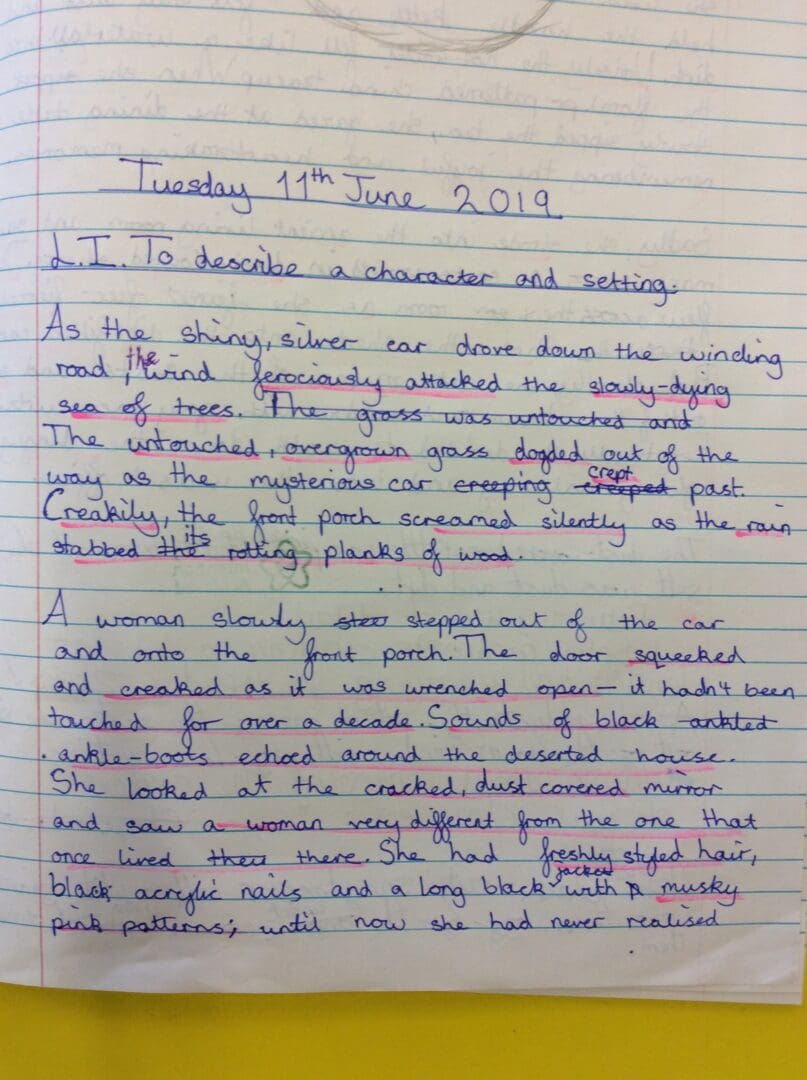 Tuesday 11th June 2019
L.I. To describe a character and setting.
As the shiny, silver car drove down the winding
road, the wind ferociously attacked the slowly-dying
sea of trees. The grass was untouched and
The untouched, overgrown grass dogded out of the
way as the mysterious car creeping creeped crept past.
Creakily, the front porch screamed silently as the rain
stabbed the its rotting planks of wood.
A woman slowly stee stepped out of the car
and onto the front porch. The door squeeked
and creaked as it was wrenched open – it hadn't been
touched for over a decade. Sounds of black ankled
ankle-boots echoed around the deserted house.
She looked at the cracked, dust covered mirror
and saw a woman very different from the one that
once lived there. She had freshly styled hair,
black acrylic nails and a long black jacket with musky
pink patterns; until now she had never realised